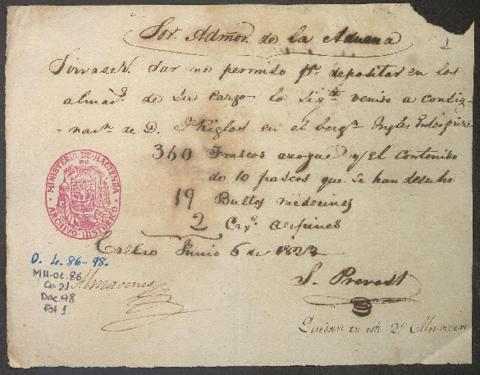 Sor. Admor. de la Aduana
2
Sirvase V. dar un permiso pa. depositar en los
almas. de su cargo lo sigte. venido a consig-
nacn. de D. J Riglos en el bergn. Ingles Enterprize
360 frascos azogue y el contenido
de 10 frascos que se han desecho
19 Bultos medecines
2 Cxs.
Callao Junio 6 de 182
MINISTERIO DE HACIENDA
ARCHIVO HISTORICO
O. L. 86-98.
MH-OL:86
Ca:21
Doc:98
Fol:1
Almacenes
S. Prevost
Quedan en este 2o. Almacen